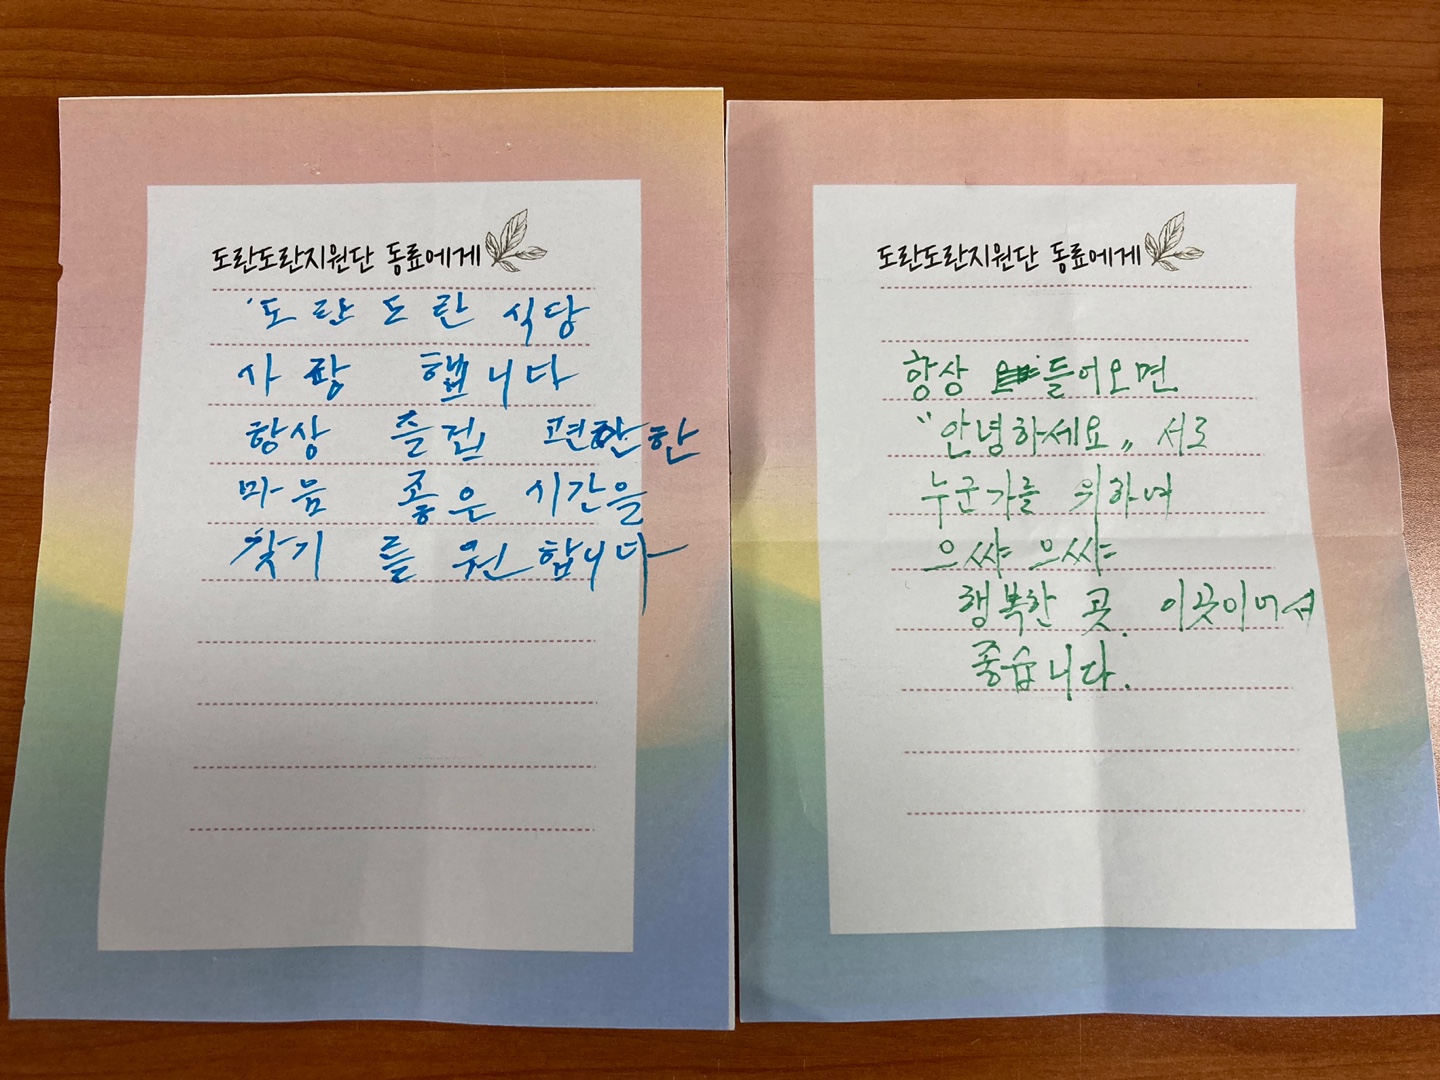 도란도란지원단 동료에게
'도란도란 식당
사랑 햅니다
항상 즐건 편한한
마음 좋은 시간을
찾기 를 원합니다
도란도란지원단 동료에게
항상 들어오면
"안녕하세요" 서로
누군가를 위하여
으쌰 으쌰
행복한 곳. 이곳이어서
좋습니다.